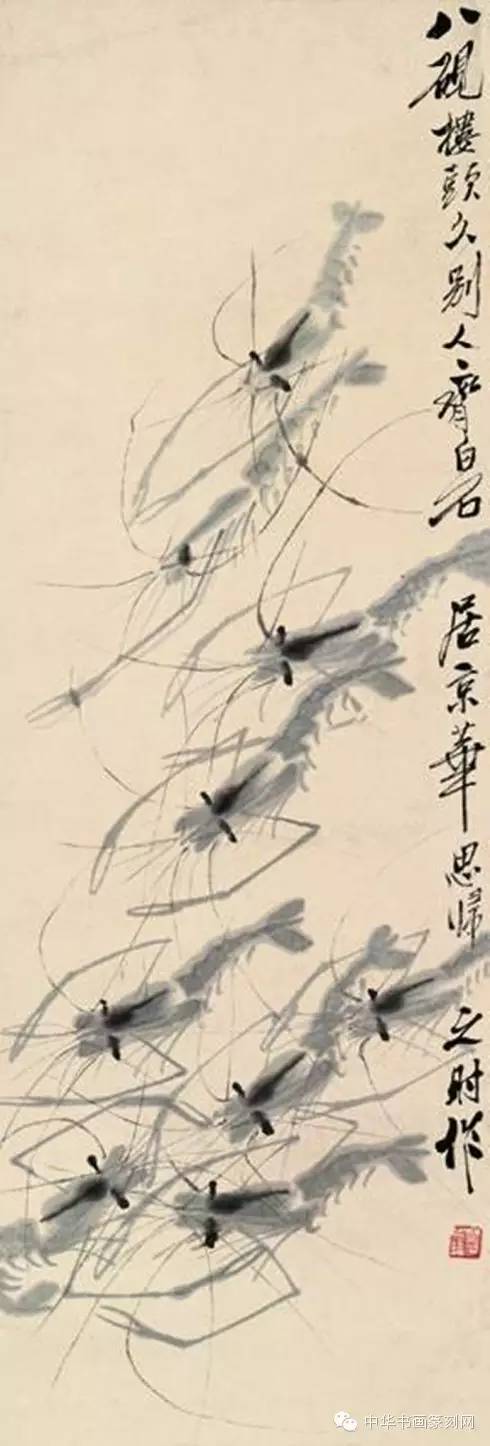 八砚楼头久别人齐白石居京華思归之时作
中华书画篆刻网